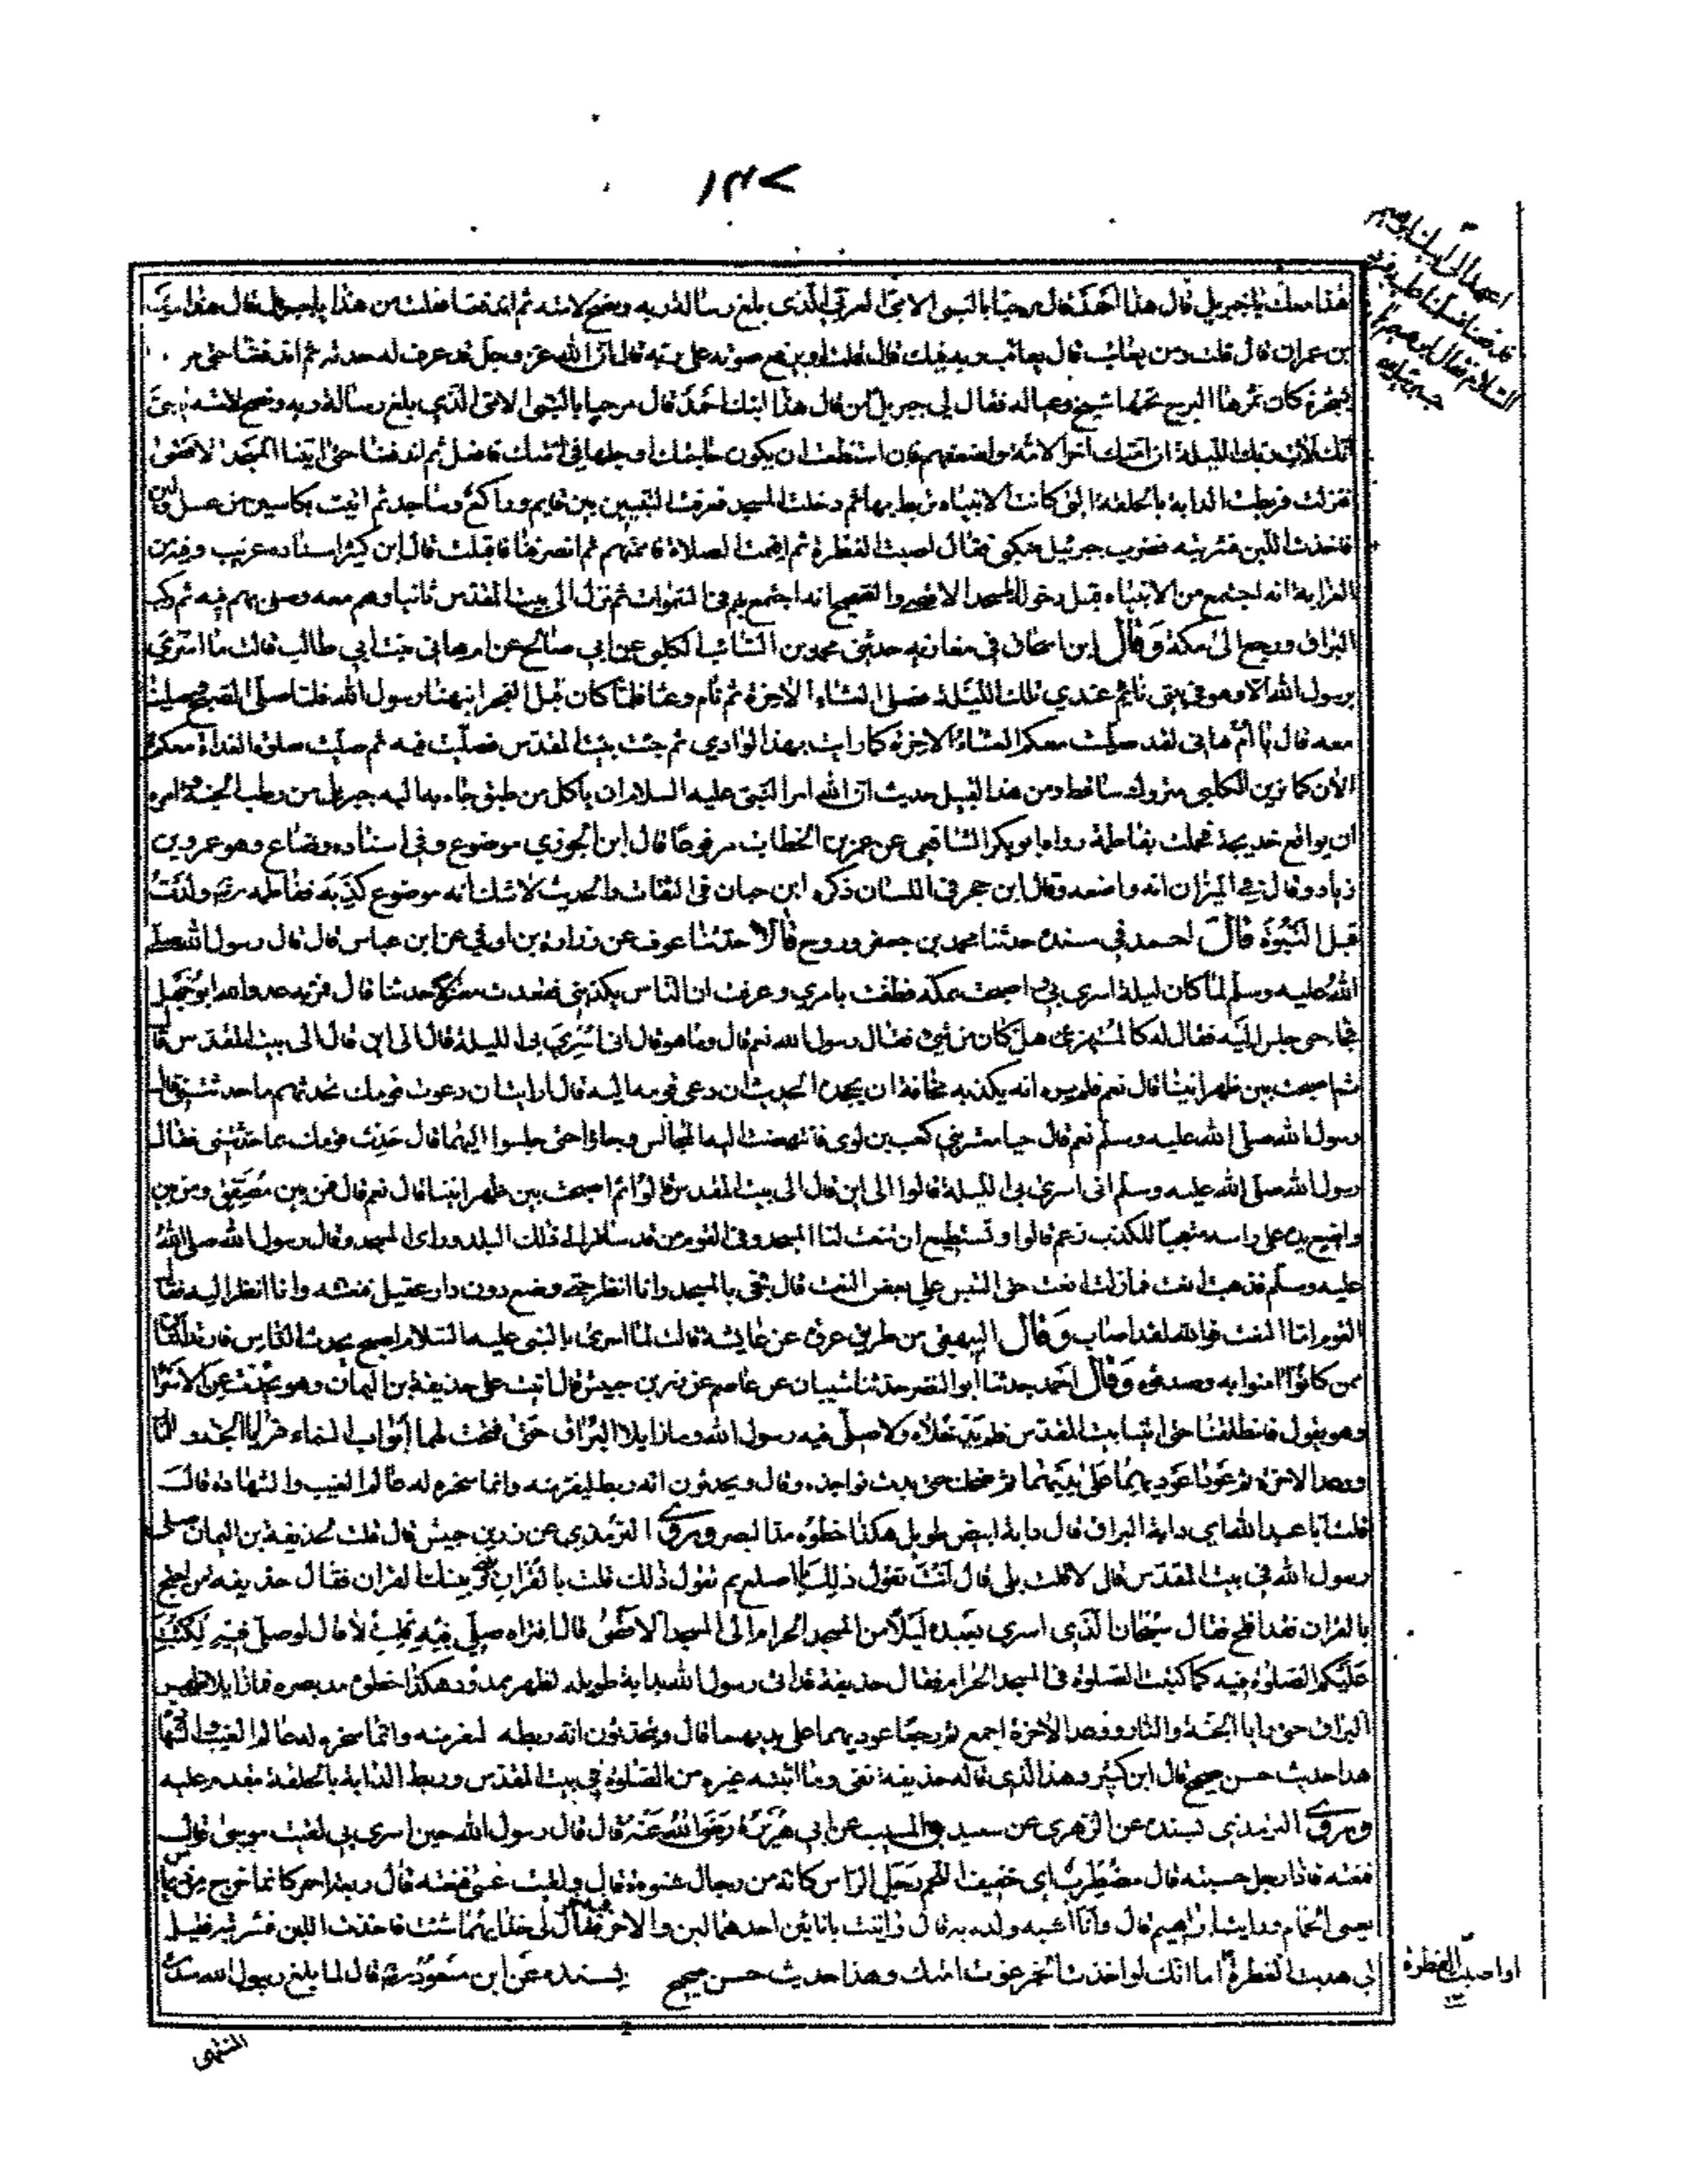 ١٣٧
هذا معك يا جبريل قال هذا احمد قال مرحبا بالنبى الامى العربى الذى بلغ رسالة ربه ونصح لامته ثم اندفعنا فقلت من هذا يا جبريل قال هذا موسى
بن عمران قال قلت ومن يعاتب قال يعاتب ربه فيك قال قلت ويرفع صوته على ربه قال ان الله عز وجل قد عرف له حدته ثم اندفعنا حتى مر
بشجرة كان ثمرها السرج تحتها شيخ وعياله فقال لى جبريل من قال هذا ابنك احمد قال مرحبا بالنبى الامى الذى بلغ رسالة ربه ونصح لامته يا بنى
انك لاق ربك الليلة ان امتك اخر الامم واضعفهم فان استطعت ان يكون حاجتك او جلها فى امتك فافعل ثم اندفعنا حتى اتينا المسجد الاقصى
فنزلت فربطت الدابة بالحلقة التى كانت الانبياء تربط بها ثم دخلت المسجد فعرفت النبيين بين قايم وراكع وساجد ثم اتيت بكاسين من عسل ولبن
فاخذت اللبن فشربته فضرب جبرئيل منكبى فقال اصبت الفطرة ثم اقيمت الصلاة فاممتهم ثم انصرفنا فاقبلت قال ابن كثير اسناده غريب وفيه من
الغرابة انه اجتمع من الانبياء قبل دخوله المسجد الاقصى والصحيح انه اجتمع بهم فى السموات ثم نزل الى بيت المقدس ثانيا وهم معه وصلى بهم فيه ثم ركب
البراق ورجع الى مكة وقال ابن اسحاق فى مغازيه حدثنى محمد بن السائب الكلبى عن ابى صالح عن ام هانى بنت ابى طالب قالت ما اسرى
برسول الله الا وهو فى بيتى نائم عندي تلك الليلة فصلى العشاء الاخرة ثم نام ونمنا فلما كان قبل الفجر انبهنا رسول الله فلما صلى الصبح وصلينا
معه قال يا ام هانى لقد صليت معكم العشاء الاخرة كما رايت بهذا الوادي ثم جئت بيت المقدس فصليت فيه ثم صليت صلوة الغداة معكم
الان كما ترين الكلبى متروك ساقط ومن هذا القبيل حديث ان الله امر النبى عليه السلام ان ياكل من طبق جاء به اليه جبريل من رطب الجنة ثم امره
ان يواقع خديجة فحملت بفاطمة رواه ابو بكر الشافعى عن عمر بن الخطاب مرفوعا قال ابن الجوزي موضوع وفى اسناده وضاع وهو عمرو بن
زياد وقال فى الميزان انه واضعه وقال ابن حجر فى اللسان ذكره ابن حبان فى الثقات والحديث لاشك انه موضوع كذبه ففاطمه رضى ولدت
قبل النبوة قال احمد فى مسنده حدثنا محمد بن جعفر وروح قالا حدثنا عوف عن زرارة بن اوفى عن ابن عباس قال قال رسول الله صلى
الله عليه وسلم لما كان ليلة اسرى بى اصبحت بمكة فظعت بامري وعرفت ان الناس يكذبنى فقعدت معتزلا حزينا قال فمر به عدو الله ابو جهل
فجاء حتى جلس اليه فقال له كالمستهزئ هل كان من شىء فقال رسول الله نعم قال وما هو قال انى اسرى بى الليلة قال الى اين قال الى بيت المقدس قال
ثم اصبحت بين ظهرانينا قال نعم فلم يره انه يكذبه مخافة ان يجحده الحديث ان دعى قومه اليه قال ارايت ان دعوت قومك تحدثهم ما حدثتنى قال
رسول الله صلى الله عليه وسلم نعم قال حيا معشر بنى كعب بن لوى فانتهضت اليه المجالس وجاؤا حتى جلسوا اليهما قال حدث قومك بما حدثتنى فقال
رسول الله صلى الله عليه وسلم انى اسرى بى الليلة قالوا الى اين قال الى بيت المقدس قالوا ثم اصبحت بين ظهرانينا قال نعم قال فمن بين مصفق ومن بين
واضع يده على راسه متعجبا للكذب زعم قالوا وتستطيع ان تنعت لنا المسجد وفى القوم من قد سافر الى ذلك البلد وراى المسجد وقال رسول الله صلى الله
عليه وسلم فذهبت انعت فما زلت انعت حتى التبس على بعض النعت قال فجئ بالمسجد وانا انظر حتى وضع دون دار عقيل فنعته وانا انظر اليه فقال
القوم اما النعت فوالله لقد اصاب وقال البيهقى من طريق عروة عن عايشة قالت لما اسرى بالنبى عليه السلام اصبح يحدث الناس فارتد ناس
ممن كانوا امنوا به وصدقوه وقال احمد حدثنا ابو النضر حدثنا شيبان عن عاصم عن زر بن حبيش قال اتيت على حذيفة بن اليمان وهو يحدث عن الاسرا
وهو يقول فانطلقنا حتى اتينا بيت المقدس فلم يدخلاه ولا صلى فيه رسول الله وما زايلا البراق حتى فتحت لهما ابواب السماء فرايا الجنة والنار
ووعد الاخرة ثم عادا عودهما على بدئهما ثم ضحك حتى بدت نواجذه وقال ويحدثون انه ربطه ليفر منه وانما سخره له عالم الغيب والشهادة قال
قلت ابا عبد الله اى دابة البراق قال دابة ابيض طويل هكذا خطوه مد البصر وروى الترمذي عن زر بن حبيش قال قلت لحذيفة بن اليمان اصلى
رسول الله فى بيت المقدس قال لا قلت بلى قال انت تقول ذلك يا اصلع بم تقول ذلك قلت بالقران بينى وبينك القران فقال حذيفه من احتج
بالقران فقد افلح فقال سبحان الذى اسرى بعبده ليلا من المسجد الحرام الى المسجد الاقصى قال افتراه صلى فيه قلت لا قال لو صلى فيه لكتبت
عليكم الصلوة فيه كما كتبت الصلوة فى المسجد الحرام فقال حذيفة قد اتى رسول الله بدابة طويله الظهر ممدود هكذا خطوه مد بصره فما زايلا ظهر
البراق حتى رايا الجنة والنار ووعد الاخرة اجمع ثم رجعا عودهما على بديهما قال ويتحدثون انه ربطه ليفر منه وانما سخره له عالم الغيب والشهادة
هذا حديث حسن صحيح قال ابن كثير وهذا الذى قاله حذيفة نفى وما اثبته غيره من الصلوة فى بيت المقدس وربط الدابة بالحلقة مقدم عليه
وروى الترمذي بسنده عن الزهرى عن سعيد بن المسيب عن ابى هريرة رضى الله عنه قال قال رسول الله حين اسرى بى لقيت موسى قال
فنعته فاذا رجل حسبته قال مضطرب اى خفيف اللحم رجل الراس كانه من رجال شنوءة قال ولقيت عيسى فنعته قال ربعة احمر كانما خرج من ديماس
يعنى الحمام ورايت ابراهيم قال وانا اشبه ولده به قال واتيت بانائين احدهما لبن والاخر خمر فقال لى خذ ايهما شئت فاخذت اللبن فشربته فقيل
لى هديت الفطرة اما انك لو اخذت الخمر غوت امتك وهذا حديث حسن صحيح بسنده عن ابن مسعود رضى قال لما بلغ رسول الله سدرة
او اصبت الفطرة
المنتهى